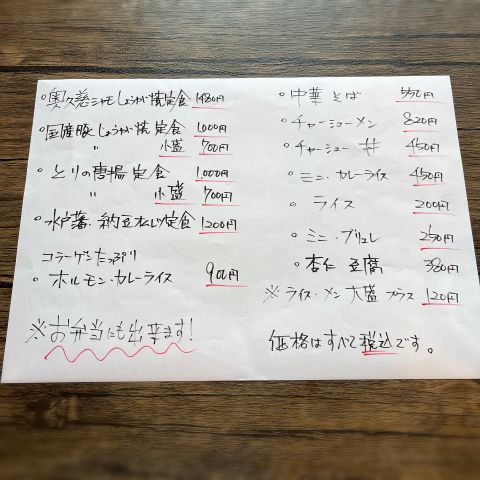 ・奥久慈シャモしょうが焼定食 1480円
・国産豚しょうが焼定食 1,000円
〃 小盛 700円
・とりの唐揚定食 1,000円
〃 小盛 700円
・水戸藩・納豆おろし定食 1200円
コラーゲンたっぷり
・ホルモン・カレーライス 900円
※お弁当にも出来ます!
・中華そば 550円
・チャーシューメン 820円
・チャーシュー丼 450円
・ミニ・カレーライス 450円
・ライス 200円
・ミニ・ブリュレ 250円
・杏仁豆腐 380円
※ライス・メン大盛プラス 120円
価格はすべて税込です。